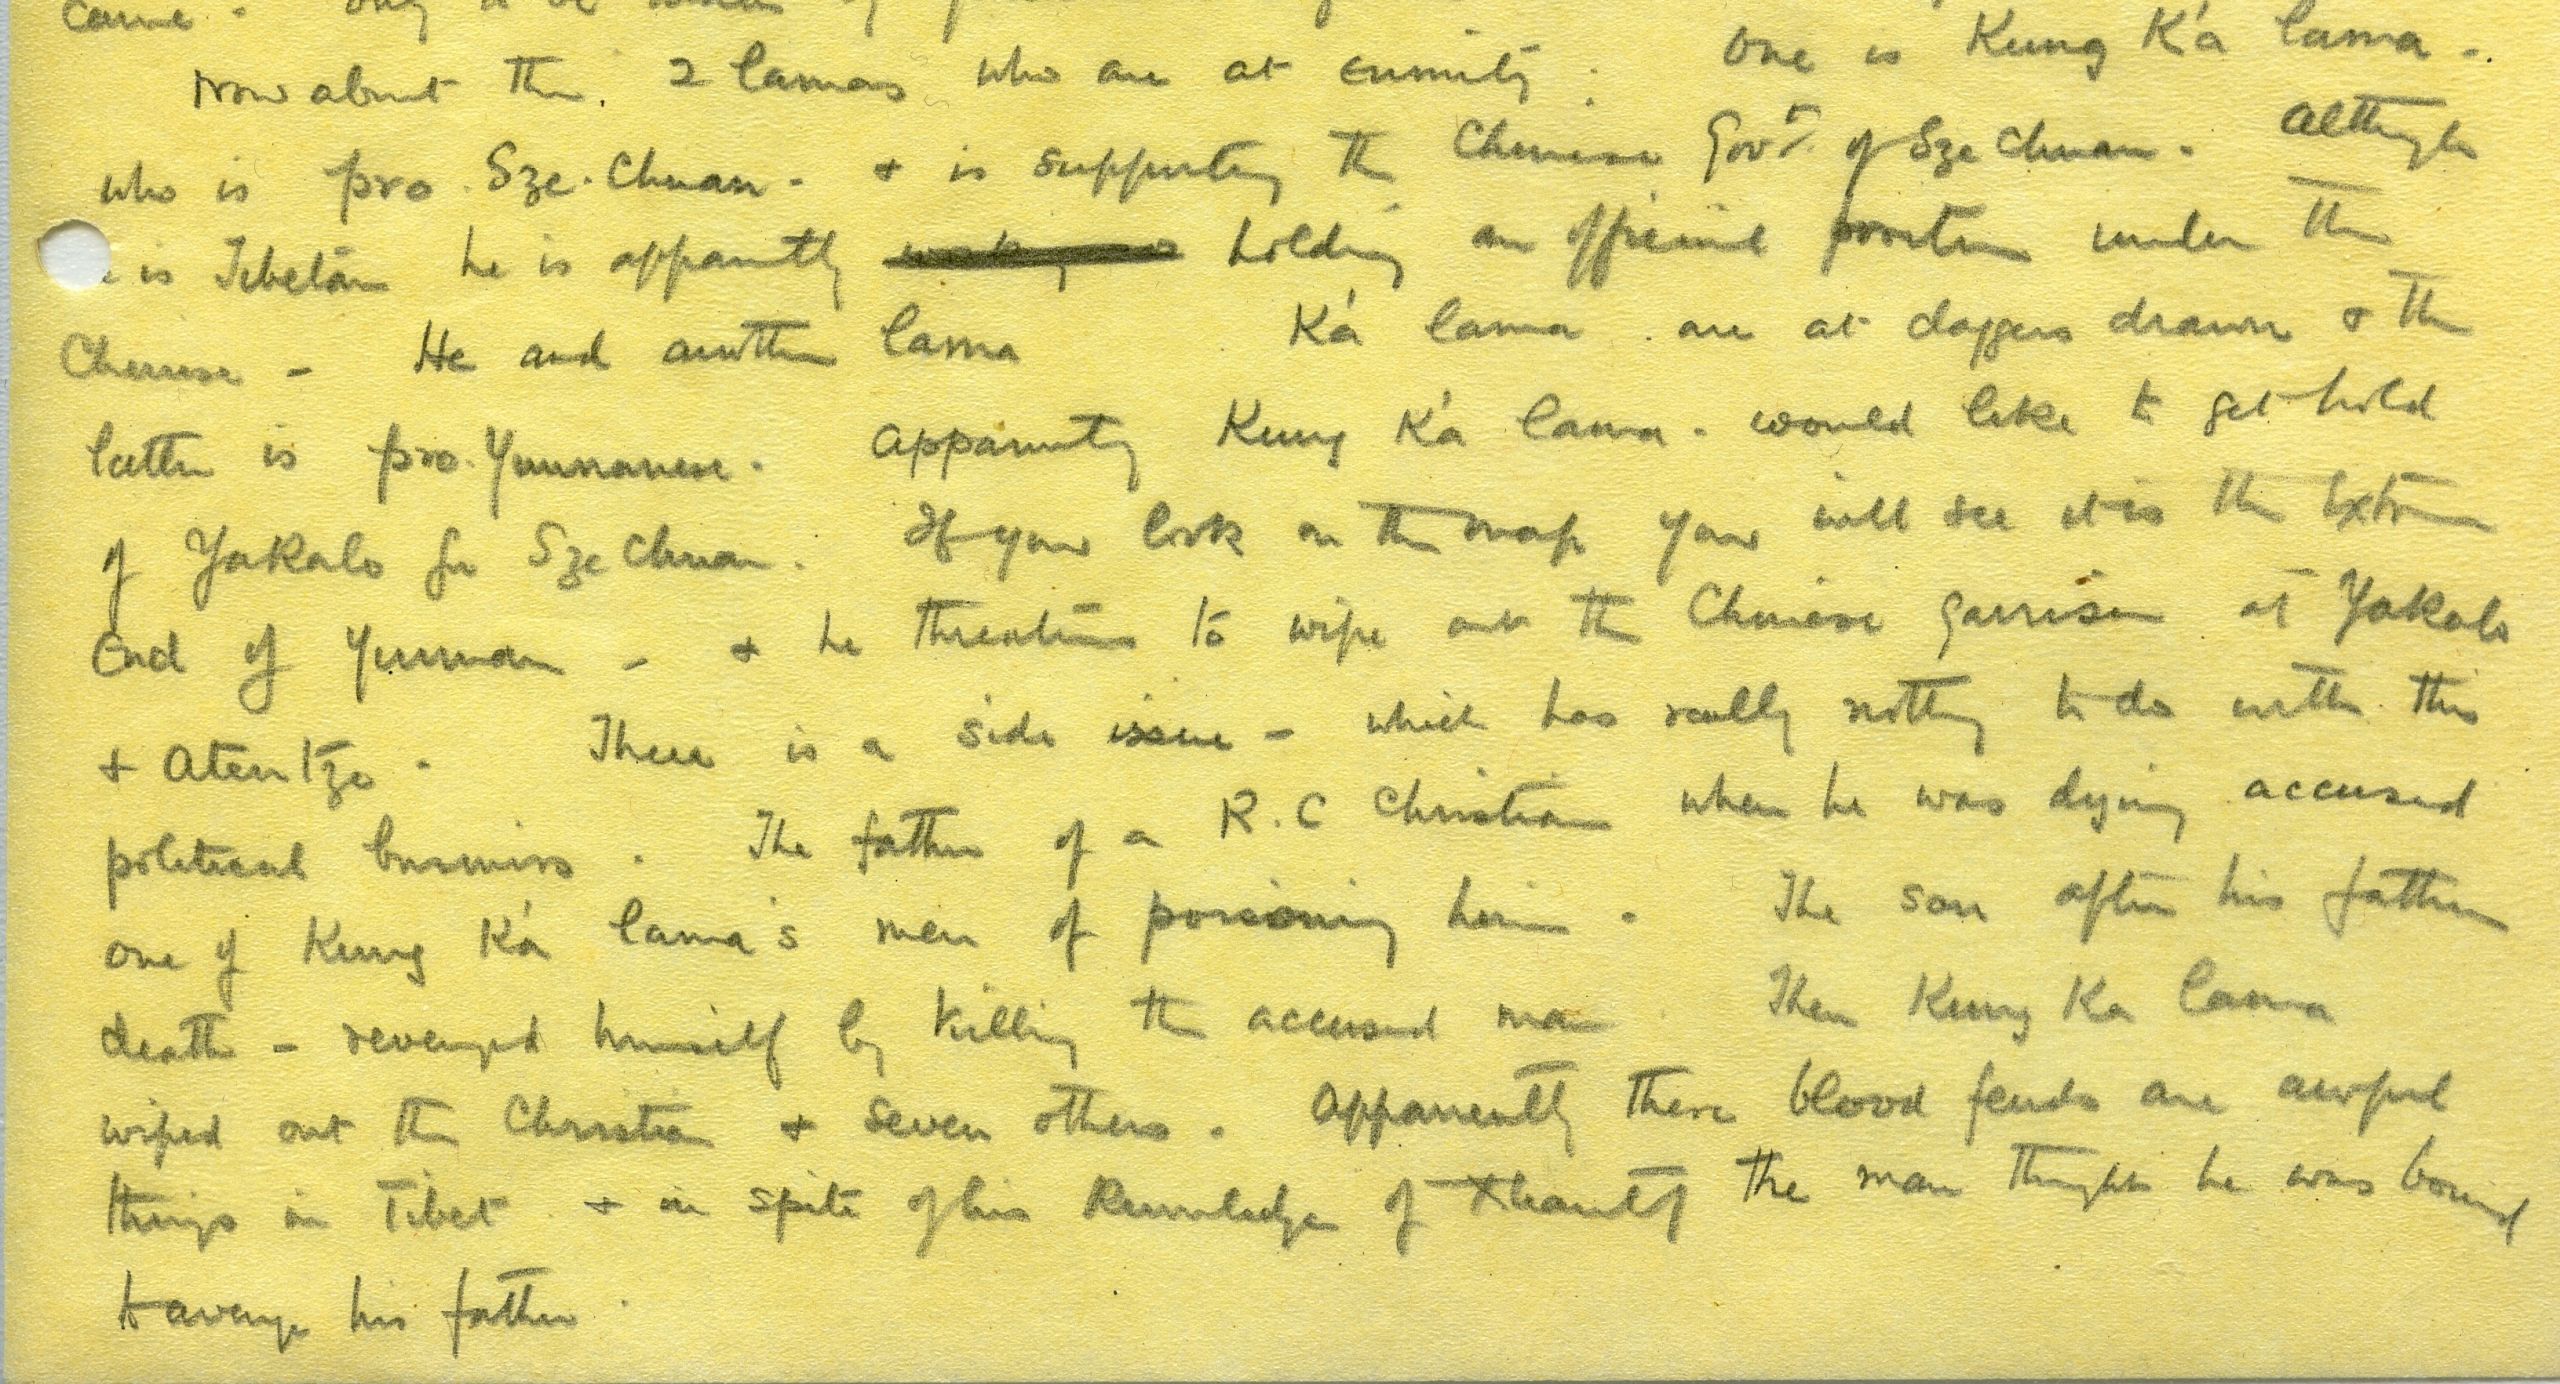 came. only to be
Now about the 2 lamas who are at enmity: One is Kung K'a lama.
who is pro. Sze. Chuan. + is supporting the Chinese Govt. of Sze Chuan. Although
is Tibetan he is apparently holding an official position under the
Chinese - He and another lama K'a lama are at daggers drawn & the
latter is pro. Yunnanese. Apparently Kung K'a lama. would like to get hold
of Yakalo for Sze Chuan. If you look on the map you will see it is the extreme
End of Yunnan - + he threatens to wipe out the Chinese garrison at Yakalo
+ Atentzo. There is a side issue - which has really nothing to do with this
political business. The father of a R.C Christian when he was dying accused
one of Kung K'a lama's men of poisoning him. The son after his father
death - revenged himself by killing the accused man Then Kung Ka lama
wiped out the Christian + seven others. Apparently these blood feuds are awful
things in Tibet + in spite of his knowledge of Xtianity the man thought he was bound
to avenge his father.